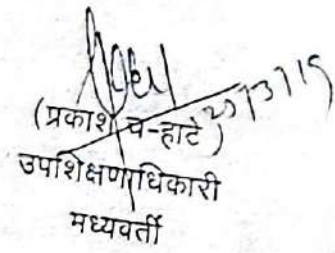 (प्रकाश च-हाटे)
उपशिक्षणाधिकारी
मध्यवर्ती